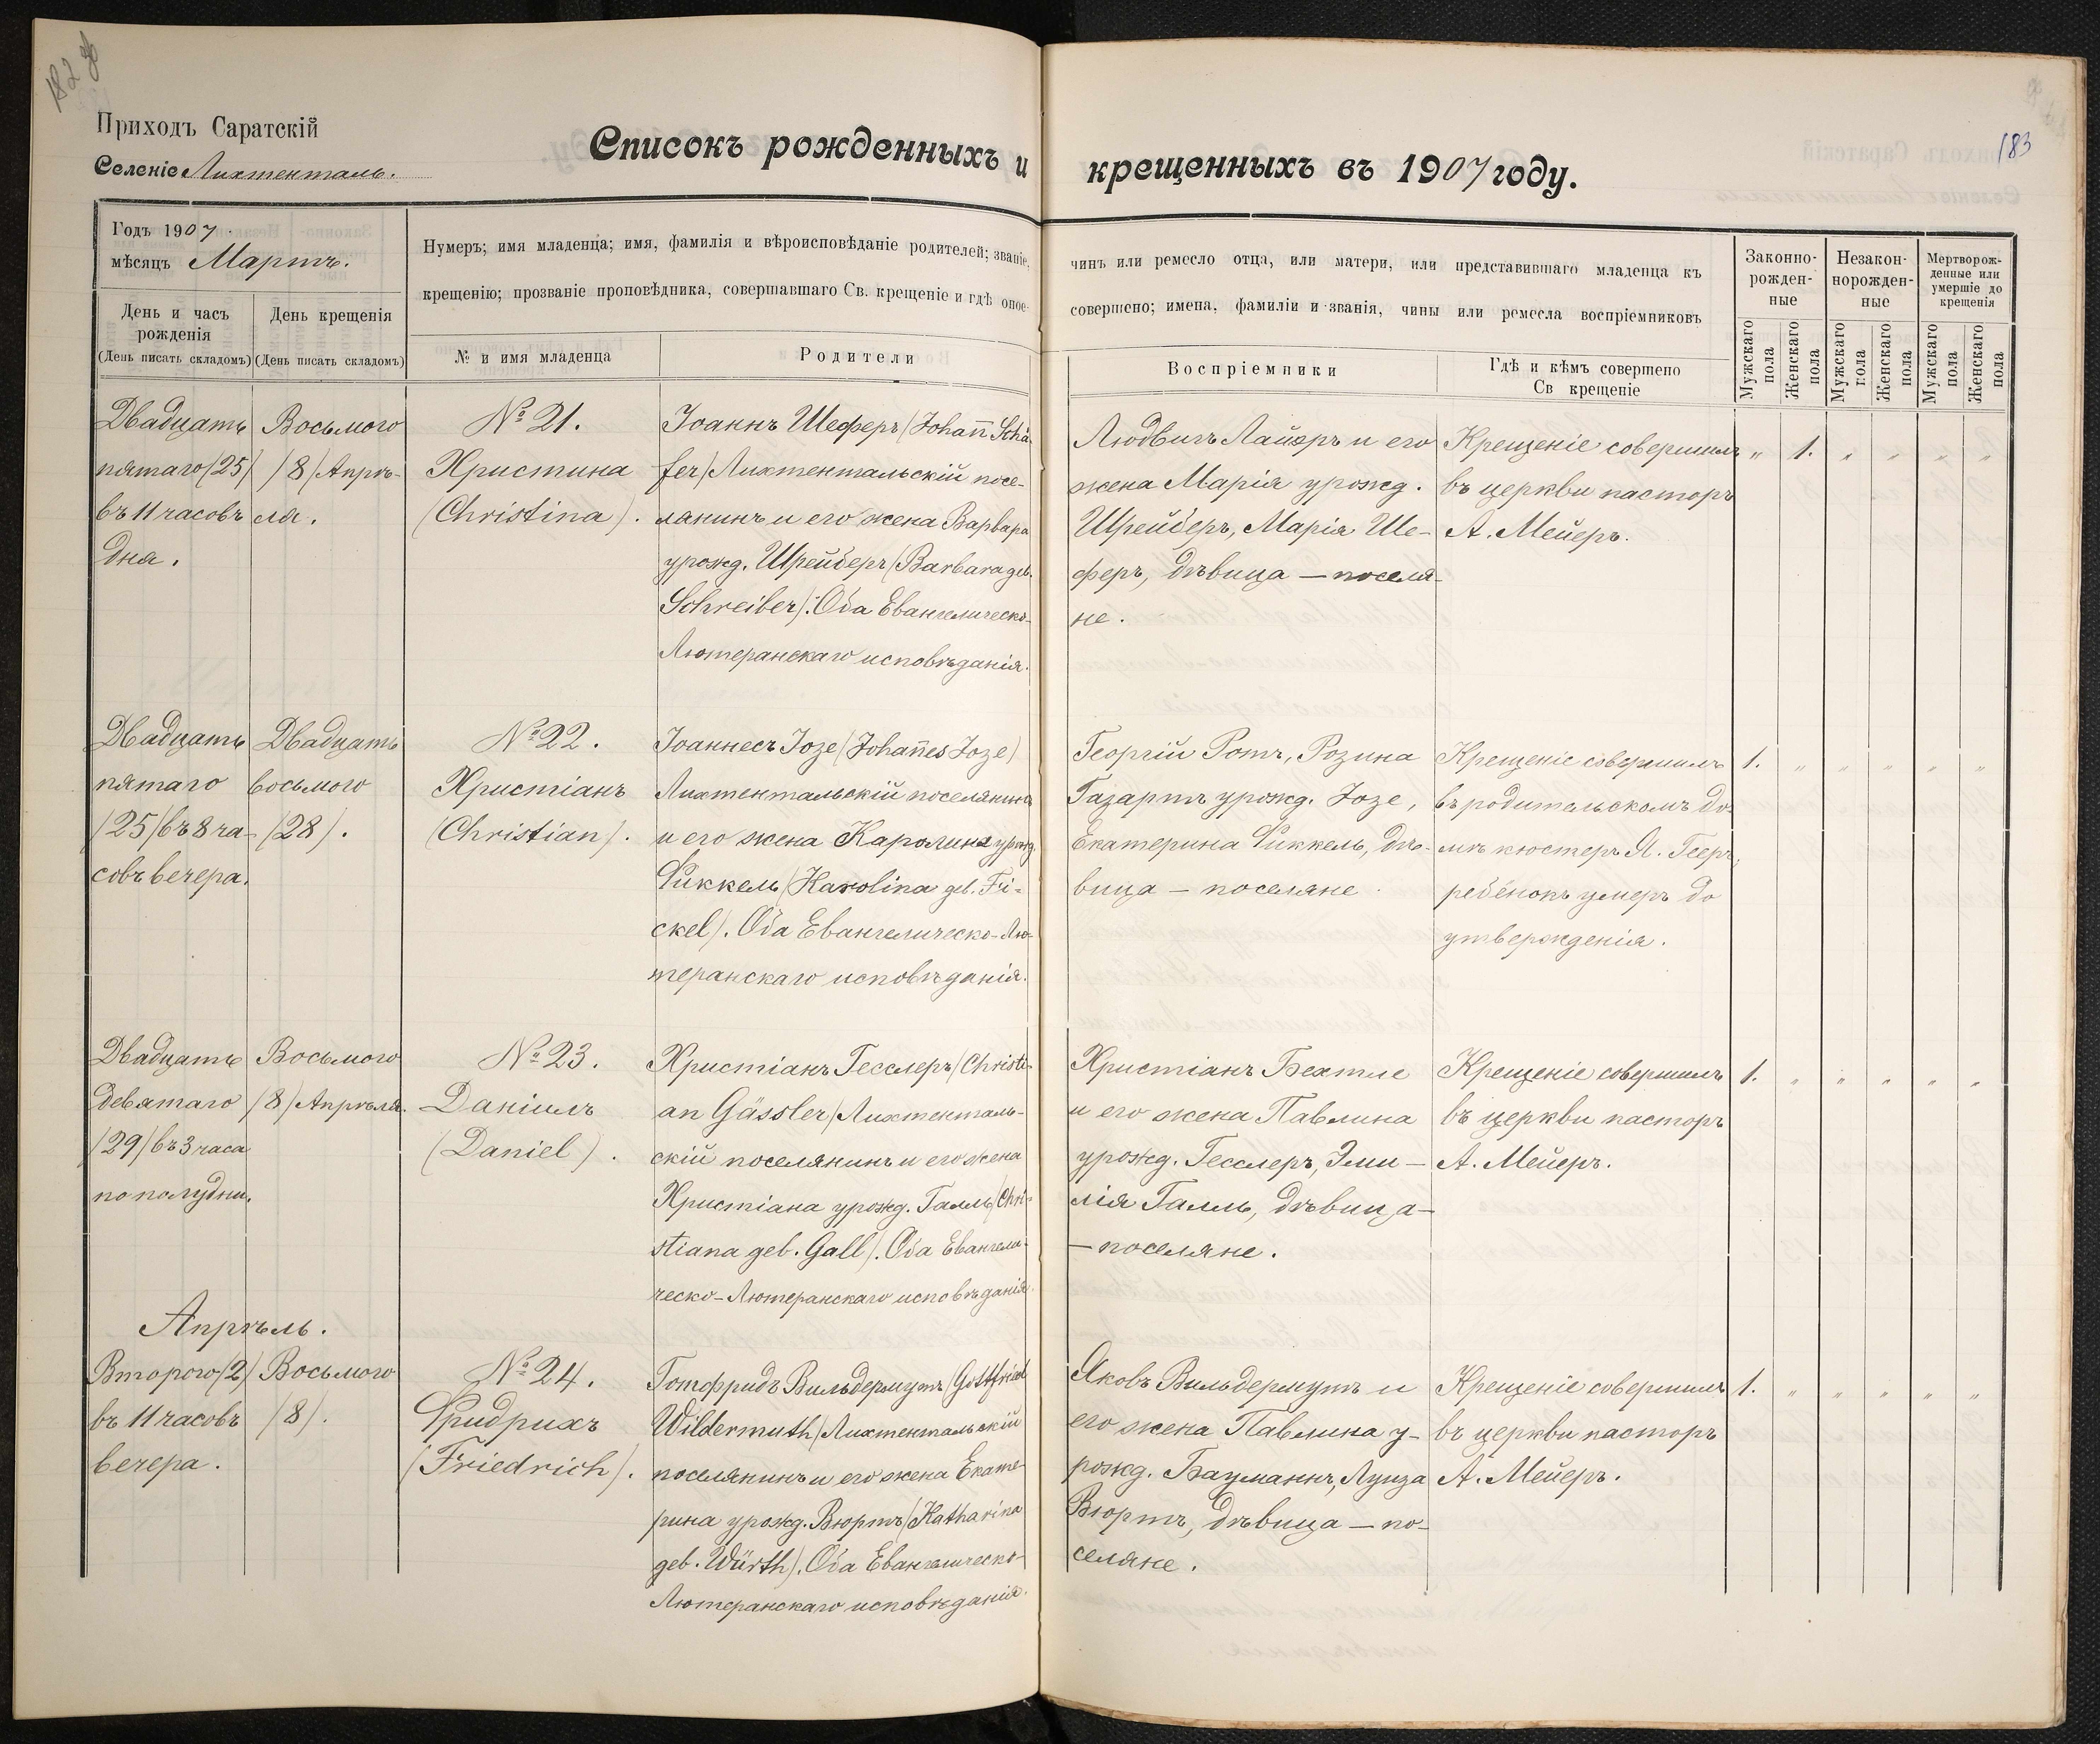 182 об
Приходъ Саратскій
Селеніе Лихтенталь.
Списокъ рожденныхъ и
Годъ 1907.
мѣсяцъ Мартъ.
Нумеръ; имя младенца; имя, фамилія и вѣроисповѣданіе родителей; званіе,
крещенію; прозваніе проповѣдника, совершавшаго Св. крещеніе и гдѣ оное
День и часъ
рожденія
(День писать складомъ)
День крещенія
(День писать складомъ)
№ и имя младенца
Родители
Двадцать
пятаго (25)
въ 11 часовъ
дня.
Восьмого
(8) Апрѣ-
ля.
№ 21.
Христина
(Christina).
Іоаннъ Шеферъ (Johann̄ Schä-
fer) Лихтентальскій посе-
лянинъ и его жена Варвара
урожд. Шрейберъ (Barbara geb.
Schreiber). Оба Евангелическо-
Лютеранскаго исповѣданія.
Двадцать
пятаго
(25) въ 8 ча-
совъ вечера.
Двадцать
восьмого
(28).
№ 22.
Христіанъ
(Christian).
Іоаннесъ Іозе (Johan̄es Joze)
Лихтентальскій поселянинъ
и его жена Каролина урожд.
Фиккель (Karolina geb. Fi-
ckel). Оба Евангелическо-Лю-
теранскаго исповѣданія.
Двадцать
девятаго
(29) въ 3 часа
по полудни.
Восьмого
(8) Апрѣля.
№ 23.
Даніилъ
(Daniel).
Христіанъ Гесслеръ (Christi-
an Gässler) Лихтенталь-
скій поселянинъ и его жена
Христіана урожд. Галль (Chri-
stiana geb. Gall). Оба Евангели-
ческо-Лютеранскаго исповѣданія.
Апрѣль.
Второго (2)
въ 11 часовъ
вечера.
Восьмого
(8).
№ 24.
Фридрихъ
(Friedrich).
Готфридъ Вильдермутъ (Gottfried
Wildermuth) Лихтентальскій
поселянинъ и его жена Екате-
рина урожд. Вюртъ (Katharina
geb. Würth). Оба Евангелическо-
Лютеранскаго исповѣданія.
183
крещенныхъ въ 1907 году.
чинъ или ремесло отца, или матери, или представившаго младенца къ
совершено; имена, фамиліи и званія, чины или ремесла воспріемниковъ
Воспріемники
Гдѣ и кѣмъ совершено
Св крещеніе
Законно-
рожден-
ные
Незакон-
норожден-
ные
Мертворож-
денные или
умершіе до
крещенія
Мужскаго
пола
Женскаго
пола
Мужскаго
пола
Женскаго
пола
Мужскаго
пола
Женскаго
пола
Людвигъ Лайеръ и его
жена Марія урожд.
Шрейберъ, Марія Ше-
феръ, дѣвица — поселя-
не.
Крещеніе совершилъ
въ церкви пасторъ
А. Мейеръ.
„ 1. „ „ „ „
Георгій Ротъ, Розина
Газартъ урожд. Іозе,
Екатерина Фиккель, дѣ-
вица — поселяне.
Крещеніе совершилъ
въ родительскомъ до-
мѣ кюстеръ Я. Гееръ,
ребёнокъ умеръ до
утвержденія.
1. „ „ „ „ „
Христіанъ Бехтле
и его жена Павлина
урожд. Гесслеръ, Эми-
лія Галль, дѣвица —
— поселяне.
Крещеніе совершилъ
въ церкви пасторъ
А. Мейеръ.
1. „ „ „ „ „
Яковъ Вильдермутъ и
его жена Павлина у-
рожд. Бауманнъ, Луиза
Вюртъ, дѣвица — по-
селяне.
Крещеніе совершилъ
въ церкви пасторъ
А. Мейеръ.
1. „ „ „ „ „